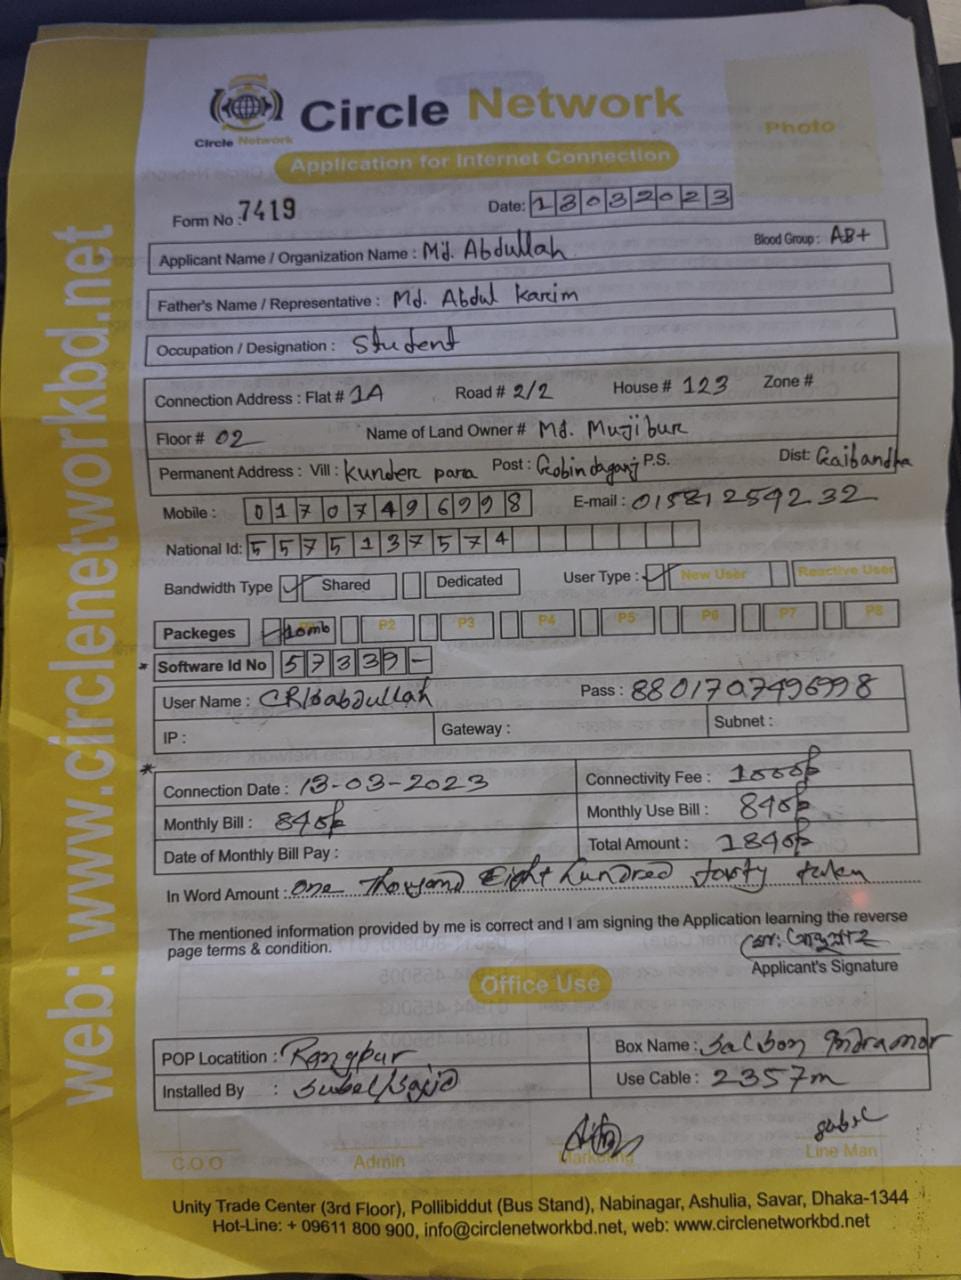 Circle Network
Circle Network
Photo
Application for Internet Connection
Form No : 7419
Date: 13032023
Applicant Name / Organization Name : Md. Abdullah
Blood Group : AB+
Father's Name / Representative : Md. Abdul Karim
Occupation / Designation : Student
Connection Address : Flat # 1A Road # 2/2 House # 123 Zone #
Floor # 02 Name of Land Owner # Md. Mujibur
Permanent Address : Vill : Kunder para Post : Gobindaganj P.S. Dist: Gaibandha
Mobile : 01707496998 E-mail : 01581259232
National Id: 5575137574
Bandwidth Type Shared Dedicated User Type : New User Reactive User
Packeges 10mb P2 P3 P4 P5 P6 P7 P8
* Software Id No 57339-
User Name : Pass : 8801707496998
IP : Gateway : Subnet :
*
Connection Date : 13-03-2023 Connectivity Fee : 1000
Monthly Bill : 840 Monthly Use Bill : 840
Date of Monthly Bill Pay : Total Amount : 1840
In Word Amount : One Thousand Eight hundred forty taka
The mentioned information provided by me is correct and I am signing the Application learning the reverse
page terms & condition.
Applicant's Signature
Office Use
POP Locatition : Rangpur Box Name :
Installed By : Use Cable : 2357m
C.O.O Admin Marketing Line Man
Unity Trade Center (3rd Floor), Pollibiddut (Bus Stand), Nabinagar, Ashulia, Savar, Dhaka-1344
Hot-Line: + 09611 800 900, info@circlenetworkbd.net, web: www.circlenetworkbd.net
web: www.circlenetworkbd.net